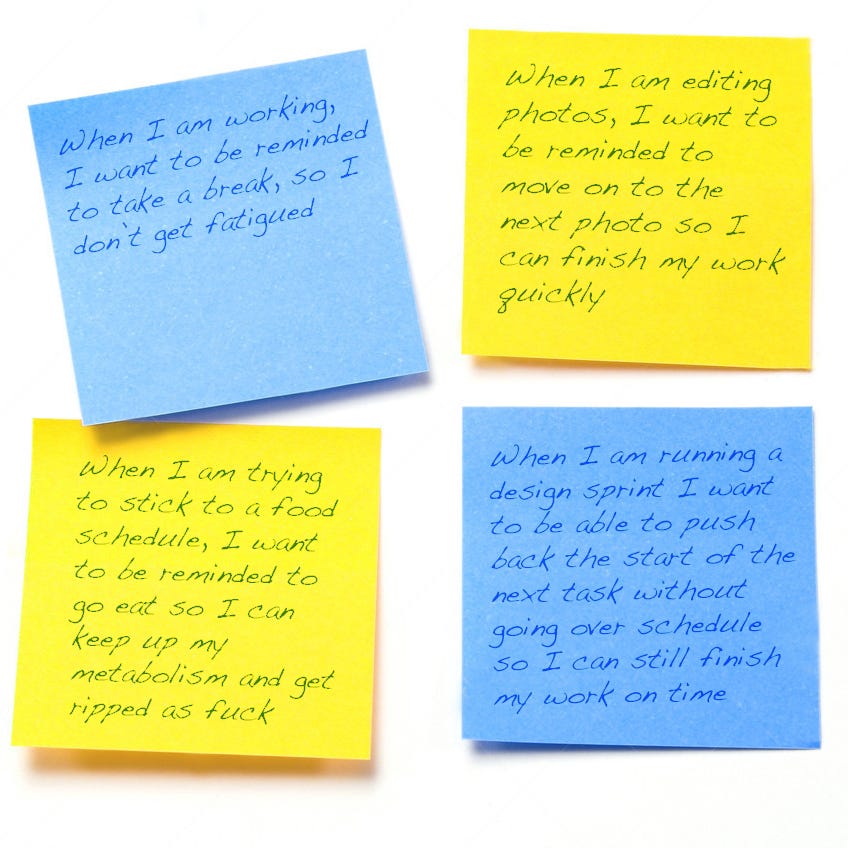 When I am working,
I want to be reminded
to take a break, so I
don't get fatigued
When I am editing
photos, I want to
be reminded to
move on to the
next photo so I
can finish my work
quickly
When I am trying
to stick to a food
schedule, I want
to be reminded to
go eat so I can
keep up my
metabolism and get
ripped as fuck
When I am running a
design sprint I want
to be able to push
back the start of the
next task without
going over schedule
so I can still finish
my work on time